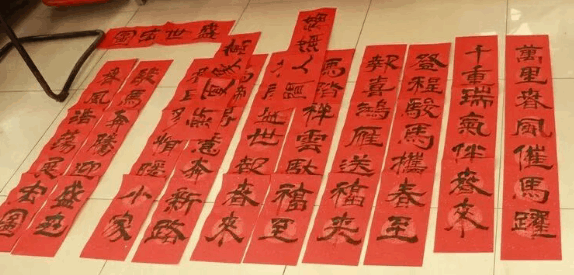 萬里春風催馬躍
千重瑞氣伴春來
登程駿馬攜春至
報喜鴻雁送福來
馬踏祥雲馱福至
世報春來
奔新路
小家
駿馬奔騰迎盛世
春風浩蕩展宏圖
盛世宏圖